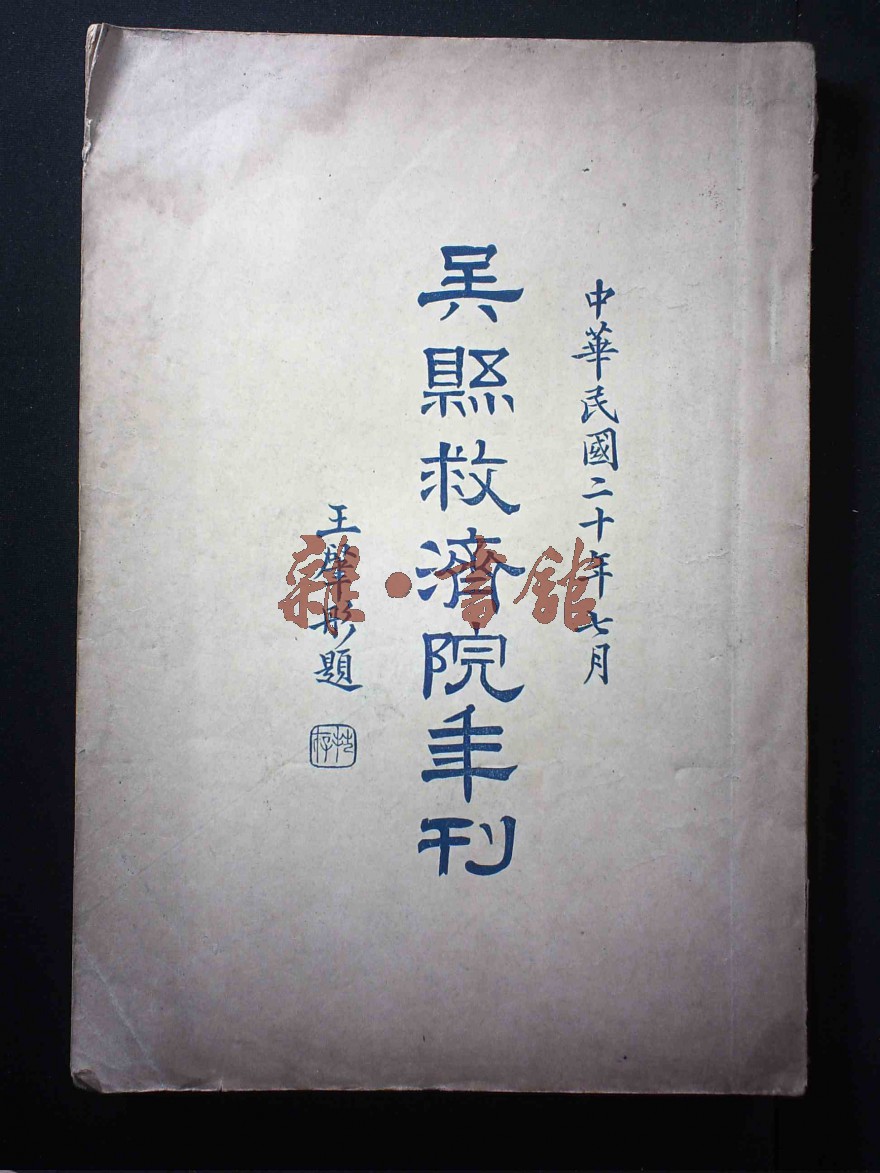 中華民國二十年七月
吳縣救濟院年刊
王 題
雜·書館